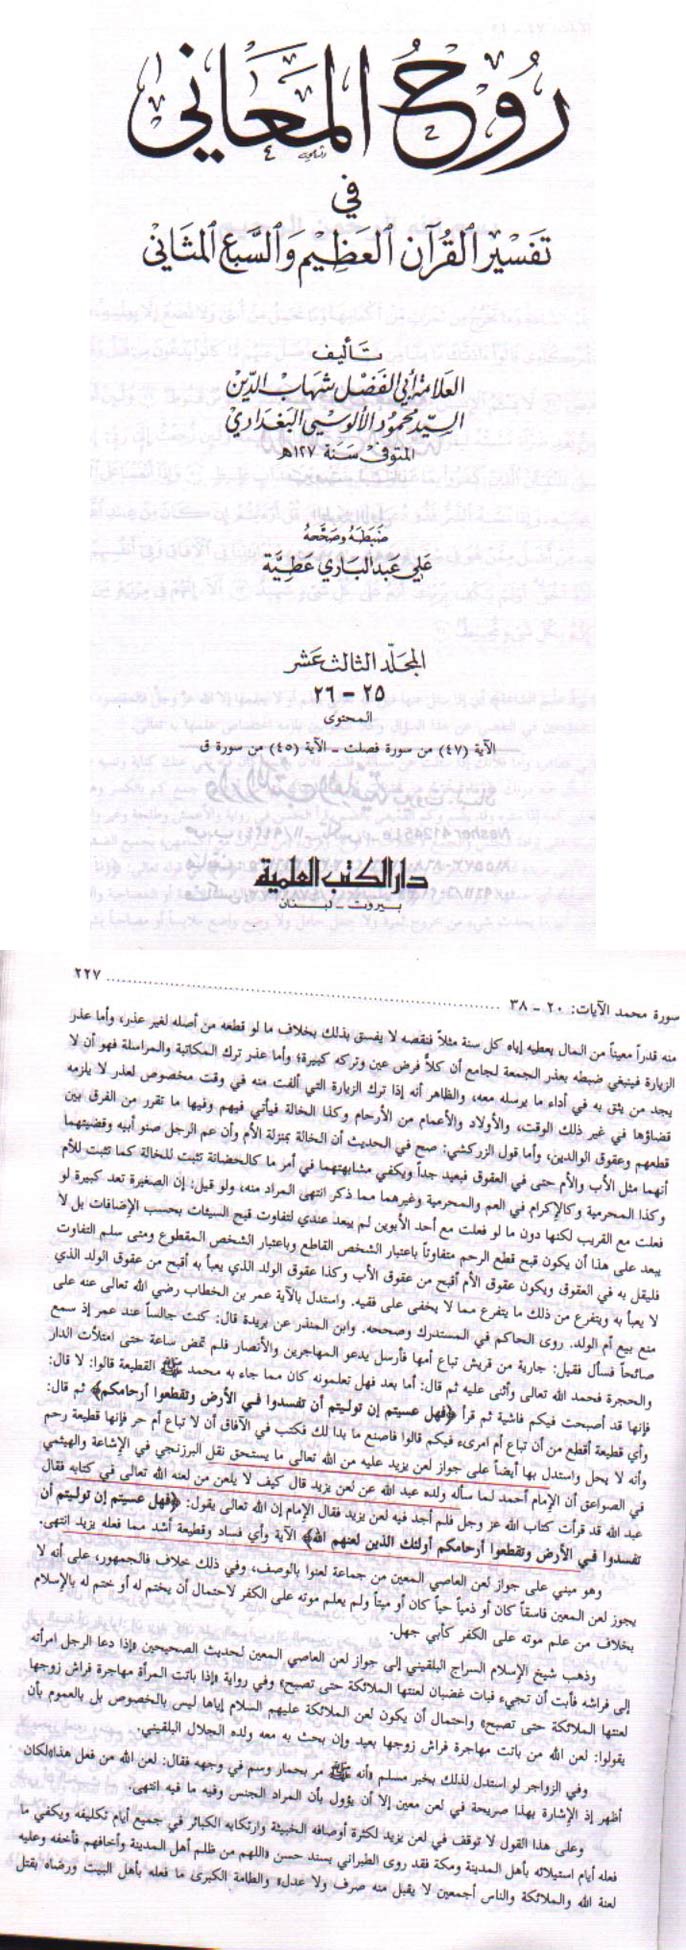 روح المعاني
في
تفسير القرآن العظيم والسبع المثاني
تأليف
العلامة أبي الفضل شهاب الدين
السيد محمود الألوسي البغدادي
المتوفى سنة ١٢٧٠هـ
ضبطه وصححه
علي عبد الباري عطية
المجلد الثالث عشر
٢٥ - ٢٦
المحتوى
الآية (٤٧) من سورة فصلت - الآية (٤٥) من سورة ق
دار الكتب العلمية
بيروت - لبنان
سورة محمد الآيات: ٢٠ - ٣٨ ............ ٢٢٧
منه قدراً معيناً من المال يعطيه إياه كل سنة مثلاً فنقصه لا يفسق بذلك بخلاف ما لو قطعه من أصله لغير عذر، وأما عذر
الزيارة فينبغي ضبطه بعذر الجمعة لجامع أن كلاً فرض عين وتركه كبيرة؛ وأما عذر ترك المكاتبة والمراسلة فهو أن لا
يجد من يثق به في أداء ما يرسله معه، والظاهر أنه إذا ترك الزيارة التي ألفت منه في وقت مخصوص لعذر لا يلزمه
قضاؤها في غير ذلك الوقت، والأولاد والأعمام من الأرحام وكذا الخالة فيأتي فيهم وفيها ما تقرر من الفرق بين
قطعهم وعقوق الوالدين، وأما قول الزركشي: صح في الحديث أن الخالة بمنزلة الأم وأن عم الرجل صنو أبيه وقضيتهما
أنهما مثل الأب والأم حتى في العقوق فبعيد جداً ويكفي مشابهتهما في أمر ما كالحضانة تثبت للخالة كما تثبت للأم
وكذا المحرمية وكالإكرام في العم والمحرمية وغيرهما مما ذكر انتهى المراد منه، ولو قيل: إن الصغيرة تعد كبيرة لو
فعلت مع القريب لكنها دون ما لو فعلت مع أحد الأبوين لم يبعد عندي لتفاوت قبح السيئات بحسب الإضافات بل لا
يبعد على هذا أن يكون قبح قطع الرحم متفاوتاً باعتبار الشخص القاطع وباعتبار الشخص المقطوع ومتى سلم التفاوت
فليقل به في العقوق ويكون عقوق الأم أقبح من عقوق الأب وكذا عقوق الولد الذي يعبأ به أقبح من عقوق الولد الذي
لا يعبأ به ويتفرع من ذلك ما يتفرع مما لا يخفى على فقيه. واستدل بالآية عمر بن الخطاب رضي الله تعالى عنه على
منع بيع أم الولد. روى الحاكم في المستدرك وصححه. وابن المنذر عن بريدة قال: كنت جالساً عند عمر إذ سمع
صائحاً فسأل فقيل: جارية من قريش تباع أمها فأرسل يدعو المهاجرين والأنصار فلم تمض ساعة حتى امتلأت الدار
والحجرة فحمد الله تعالى وأثنى عليه ثم قال: أما بعد فهل تعلمونه كان مما جاء به محمد ﷺ القطيعة قالوا: لا قال:
فإنها قد أصبحت فيكم فاشية ثم قرأ ﴿فهل عسيتم إن توليتم أن تفسدوا في الأرض وتقطعوا أرحامكم﴾ ثم قال:
وأي قطيعة أقطع من أن تباع أم امرىء فيكم قالوا فاصنع ما بدا لك فكتب في الآفاق أن لا تباع أم حر فإنها قطيعة رحم
وأنه لا يحل واستدل بها أيضاً على جواز لعن يزيد عليه من الله تعالى ما يستحق نقل البرزنجي في الإشاعة والهيثمي
في الصواعق أن الإمام أحمد لما سأله ولده عبد الله عن لعن يزيد قال كيف لا يلعن من لعنه الله تعالى في كتابه فقال
عبد الله قد قرأت كتاب الله عز وجل فلم أجد فيه لعن يزيد فقال الإمام إن الله تعالى يقول: ﴿فهل عسيتم إن توليتم أن
تفسدوا في الأرض وتقطعوا أرحامكم أولئك الذين لعنهم الله﴾ الآية وأي فساد وقطيعة أشد مما فعله يزيد انتهى.
وهو مبني على جواز لعن العاصي المعين من جماعة لعنوا بالوصف، وفي ذلك خلاف فالجمهور، على أنه لا
يجوز لعن المعين فاسقاً كان أو ذمياً حياً كان أو ميتاً ولم يعلم موته على الكفر لاحتمال أن يختم له أو ختم له بالإسلام
بخلاف من علم موته على الكفر كأبي جهل.
وذهب شيخ الإسلام السراج البلقيني إلى جواز لعن العاصي المعين لحديث الصحيحين «إذا دعا الرجل امرأته
إلى فراشه فأبت أن تجيء فبات غضبان لعنتها الملائكة حتى تصبح» وفي رواية «إذا باتت المرأة مهاجرة فراش زوجها
لعنتها الملائكة حتى تصبح» واحتمال أن يكون لعن الملائكة عليهم السلام إياها ليس بالخصوص بل بالعموم بأن
يقولوا: لعن الله من باتت مهاجرة فراش زوجها بعيد وإن بحث به معه ولده الجلال البلقيني.
وفي الزواجر لو استدل لذلك بخبر مسلم «أنه ﷺ مر بحمار وسم في وجهه فقال: لعن الله من فعل هذا» لكان
أظهر إذ الإشارة بهذا صريحة في لعن معين إلا أن يؤول بأن المراد الجنس وفيه ما فيه انتهى.
وعلى هذا القول لا توقف في لعن يزيد لكثرة أوصافه الخبيثة وارتكابه الكبائر في جميع أيام تكليفه ويكفي ما
فعله أيام استيلائه بأهل المدينة ومكة فقد روى الطبراني بسند حسن «اللهم من ظلم أهل المدينة وأخافهم فأخفه وعليه
لعنة الله والملائكة والناس أجمعين لا يقبل منه صرف ولا عدل» والطامة الكبرى ما فعله بأهل البيت ورضاه بقتل